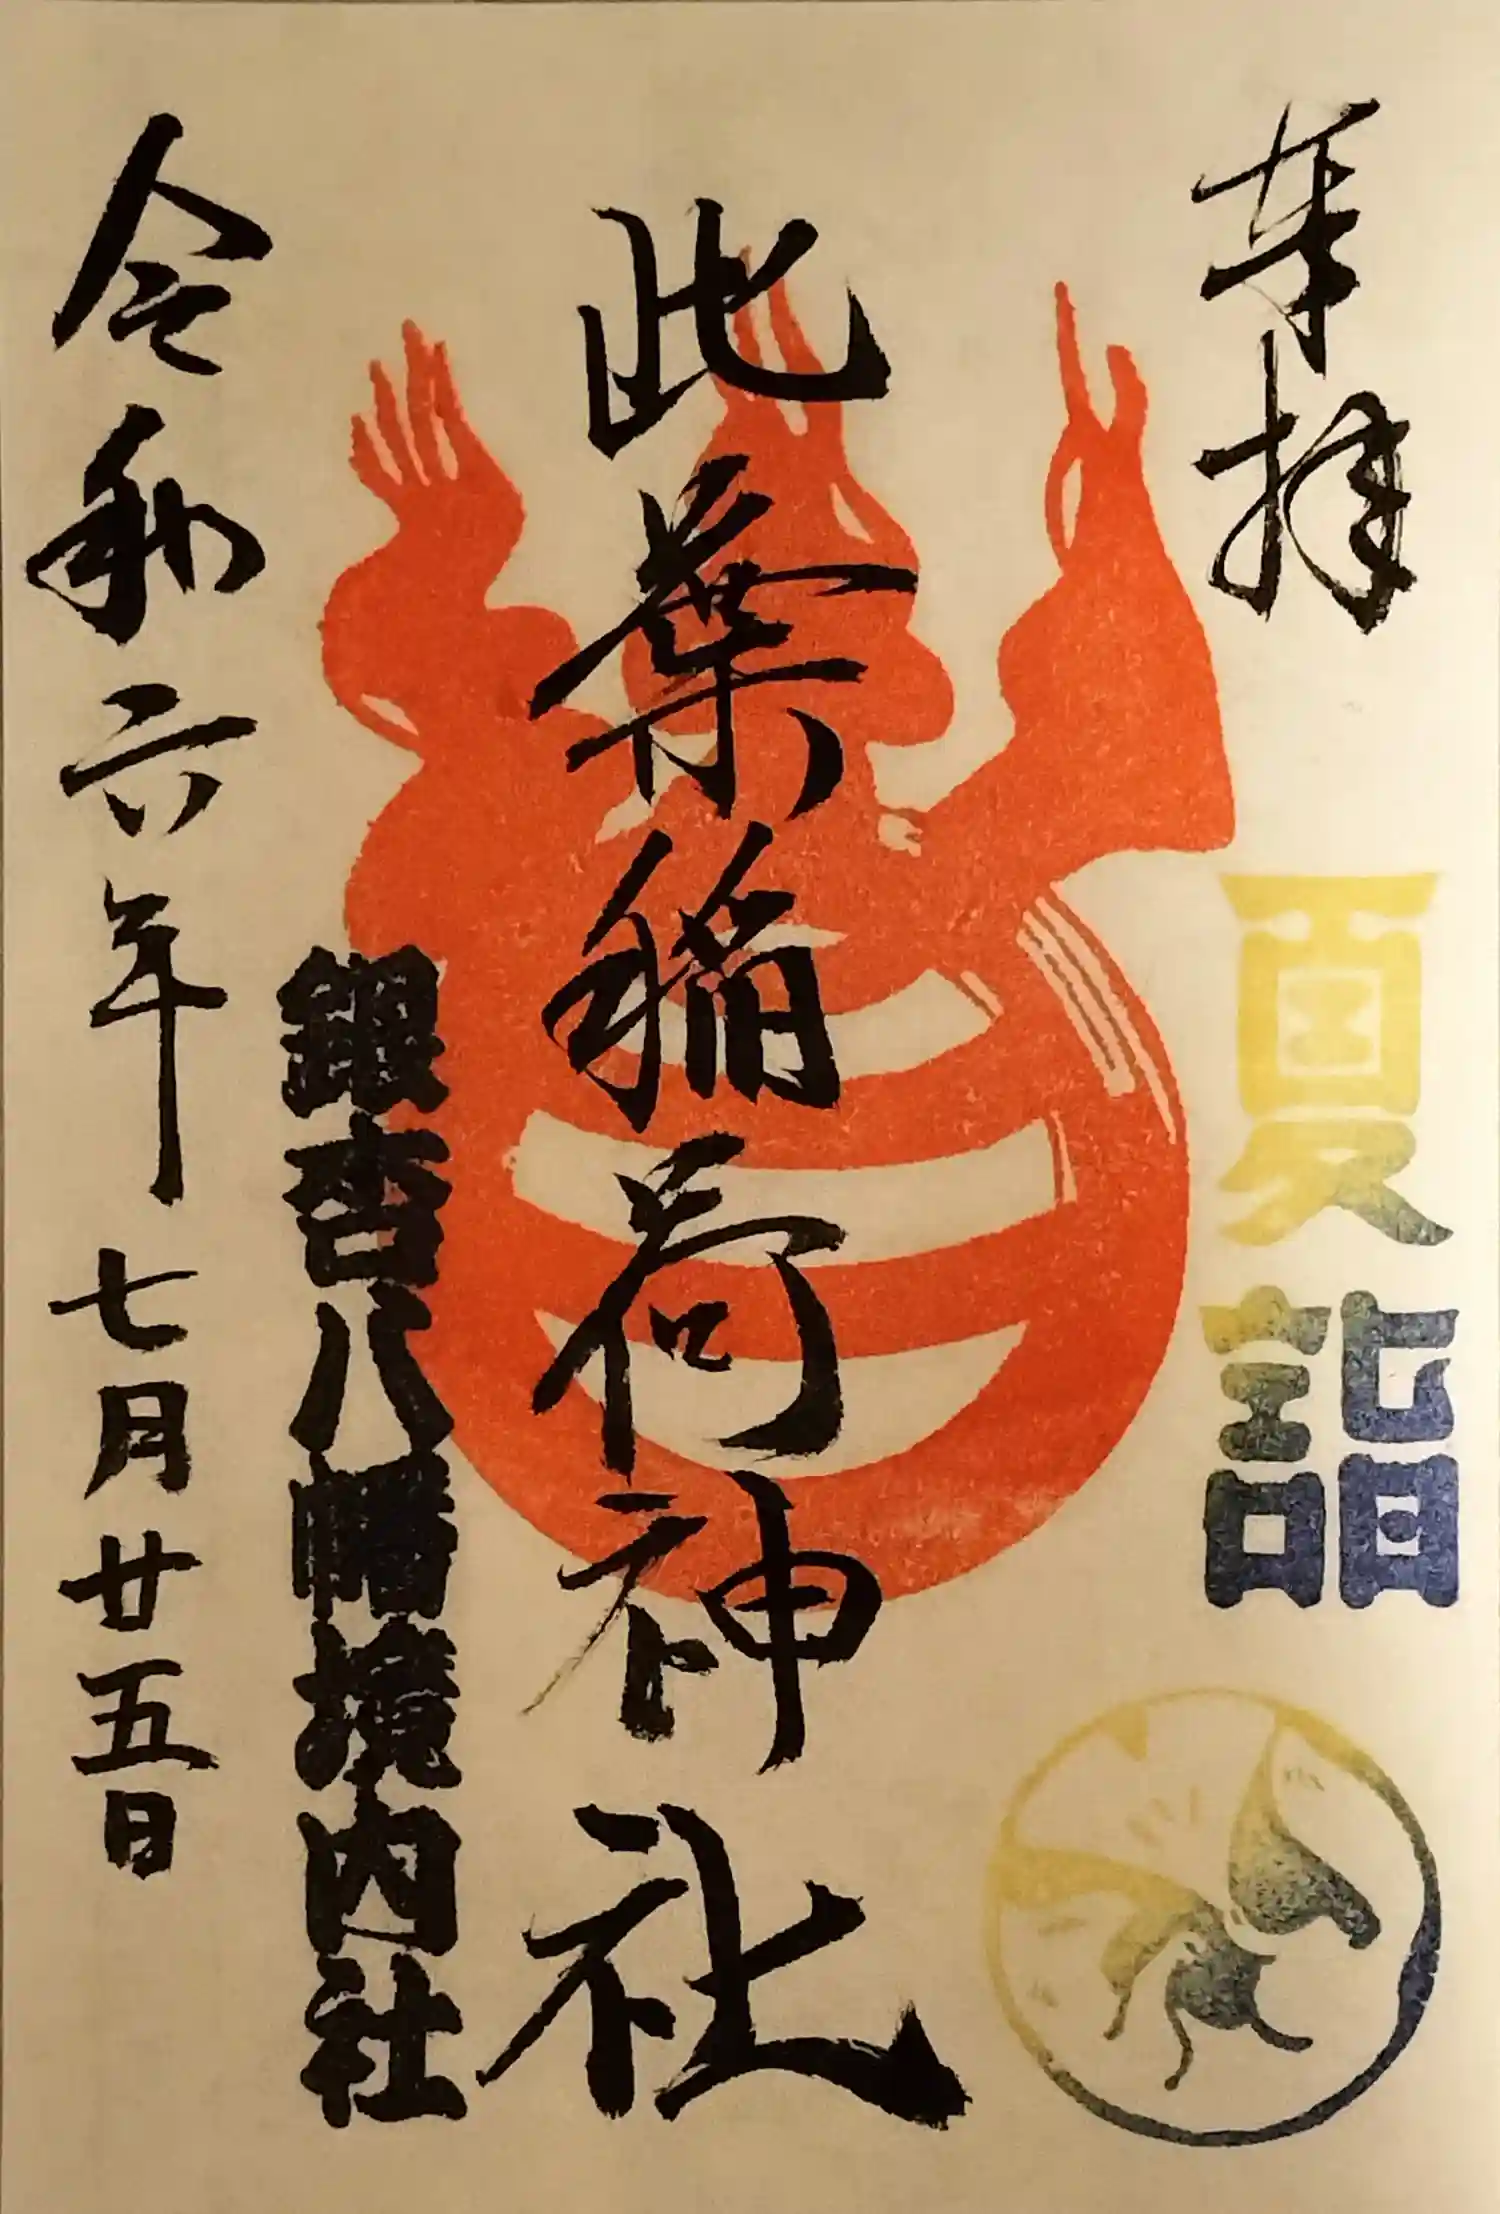 奉拝
夏詣
此葉稲荷神社
銀杏八幡境内社
令和六年七月廿五日